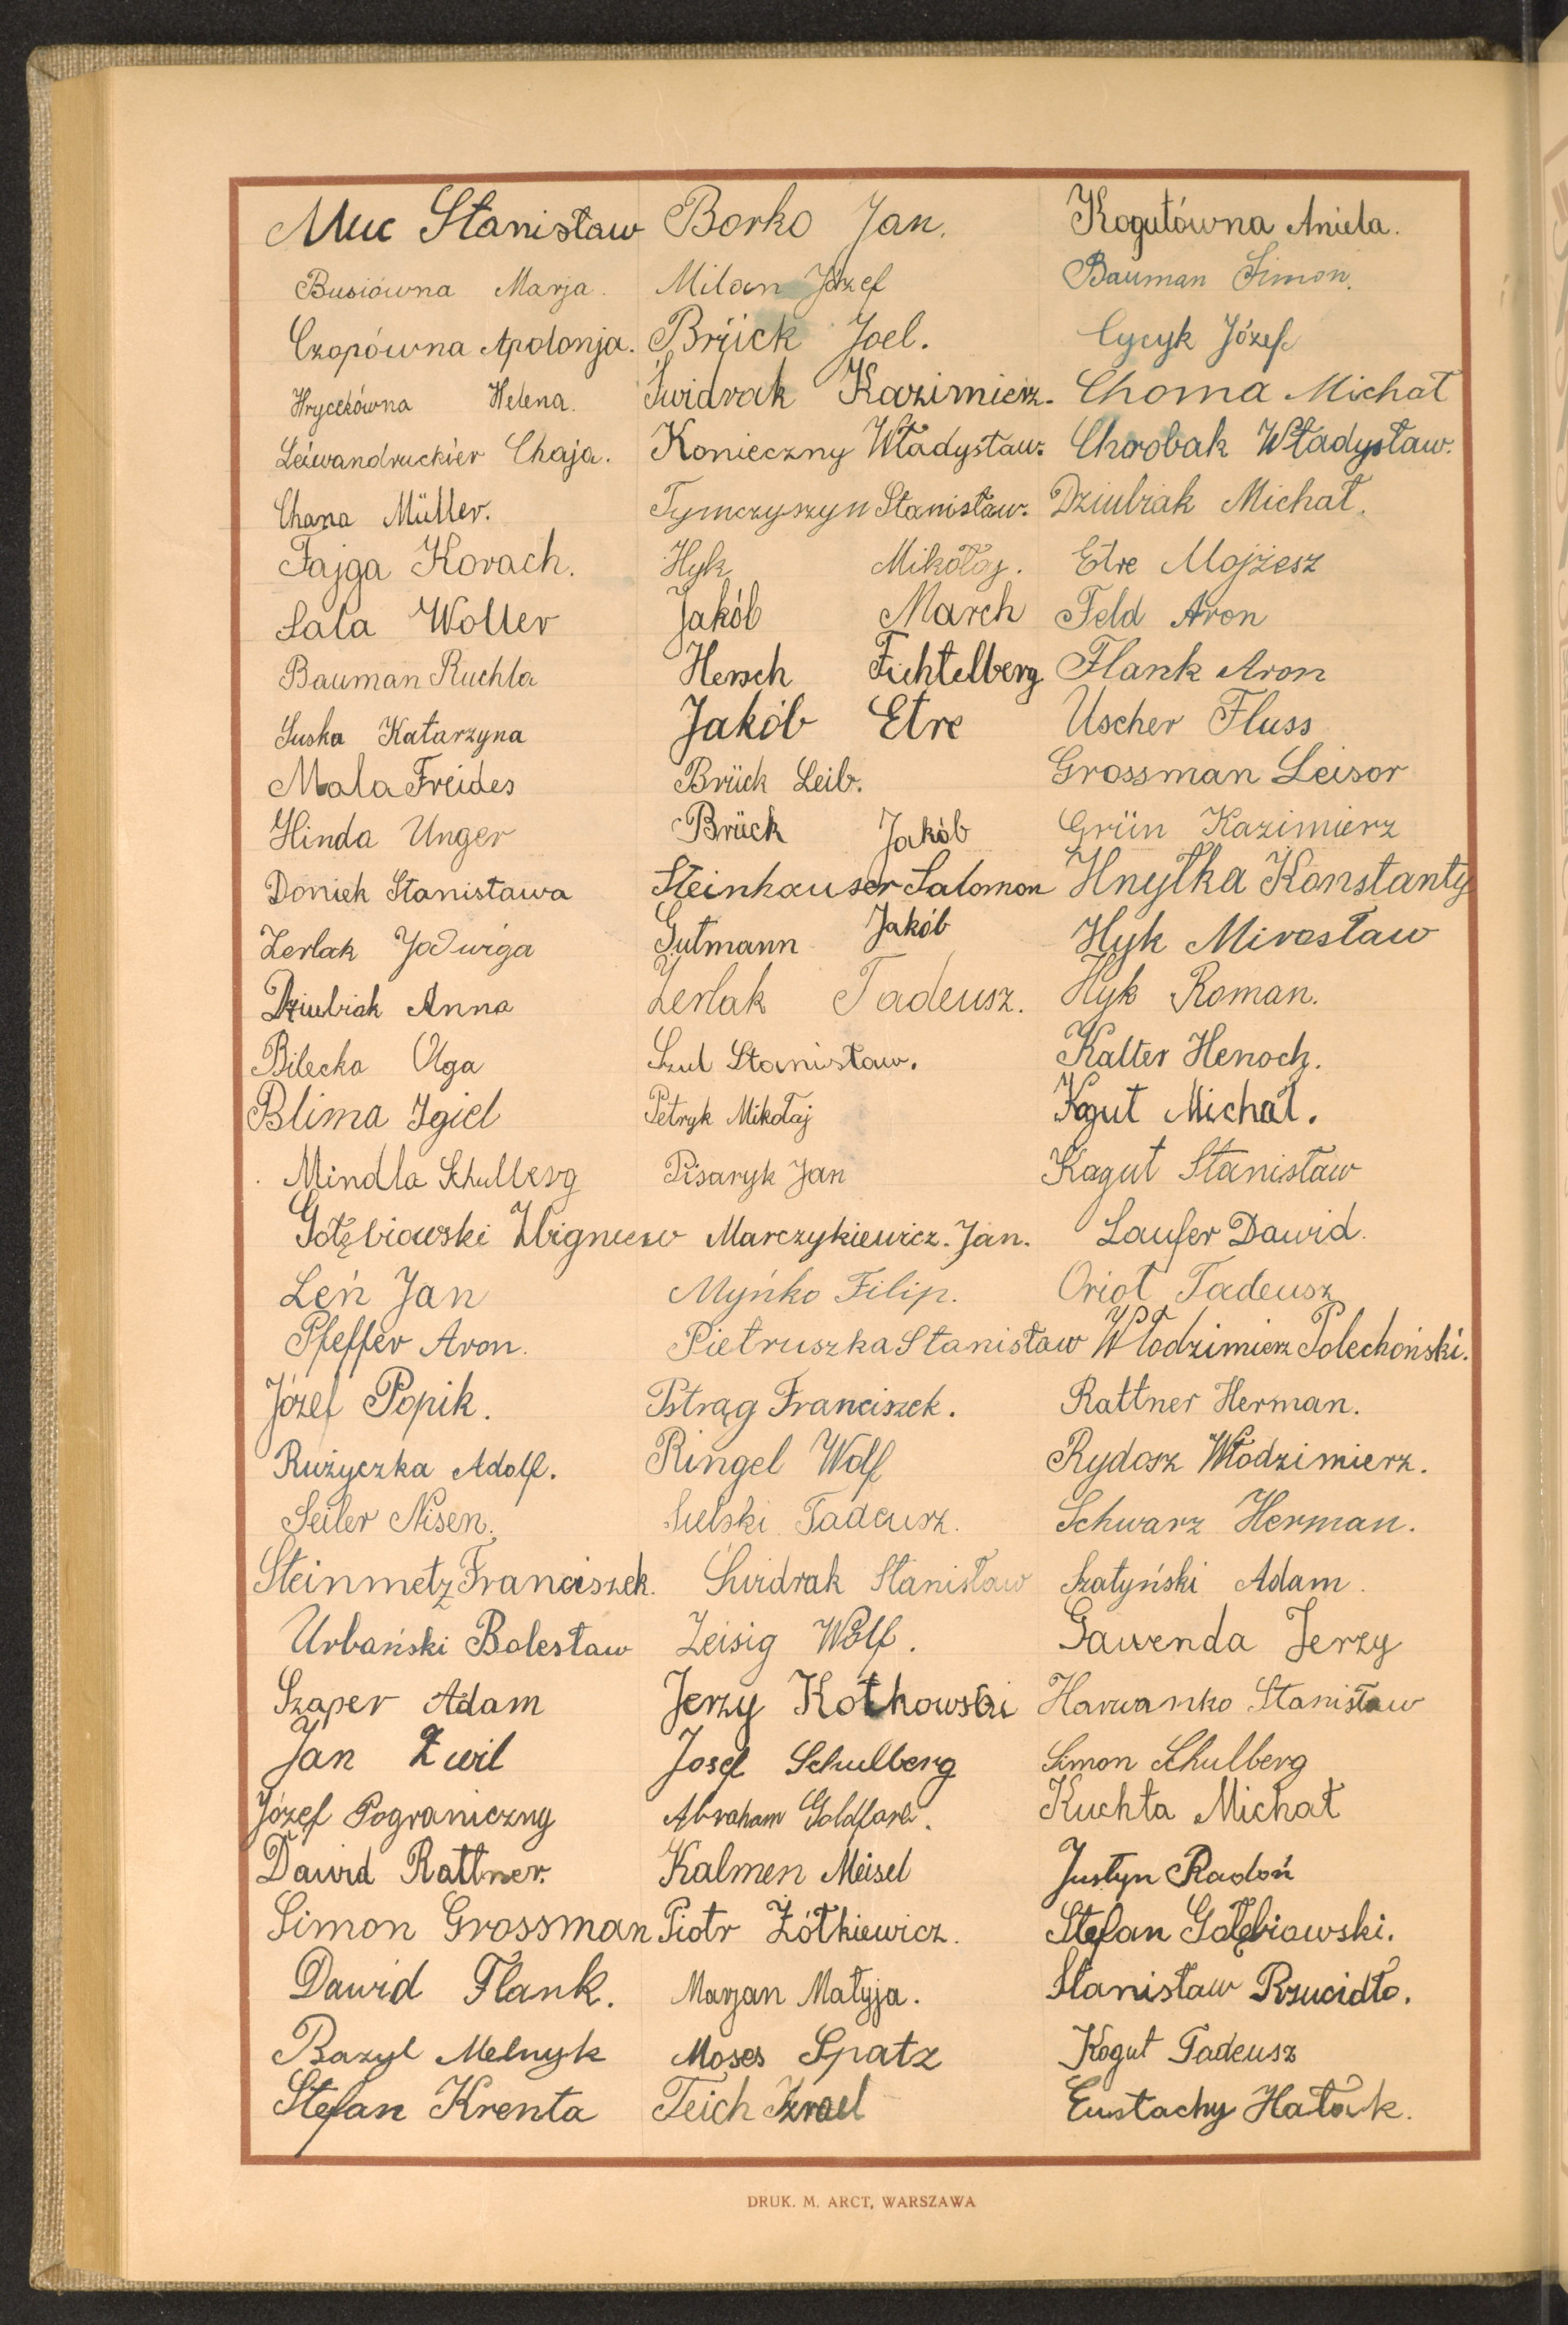 Muc Stanisław
Busiówna Marja.
Czopówna Apolonja.
Hryckówna Helena.
Leiwandruckier Chaja.
Chana Müller.
Fajga Korach.
Sala Woller
Bauman Ruchla
Suska Katarzyna
Mala Freides
Hinda Unger
Doniek Stanisława
Zerlak Jadwiga
Dziubiak Anna
Bilecka Olga
Blima Igiel
Mindla Schulberg
Gołębiowski Zbigniew
Leń Jan
Pfeffer Aron.
Józef Popik.
Rużyczka Adolf.
Seiler Nisen.
Steinmetz Franciszek.
Urbański Bolesław
Szaper Adam
Jan Żwil
Józef Pograniczny
Dawid Rattner.
Simon Grossman
Dawid Flank.
Bazyl Melnyk
Stefan Krenta
Borko Jan.
Milan Józef
Brück Joel.
Świdrak Kazimierz.
Konieczny Władysław.
Tymczyszyn Stanisław.
Hyk Mikołaj.
Jakób March
Hersch Fichtelberg
Jakób Etre
Brück Leib.
Brück Jakób
Steinhauser Salomon
Gutmann Jakób
Zerlak Tadeusz.
Szul Stanisław.
Petryk Mikołaj
Pisaryk Jan
Marczykiewicz Jan.
Myńko Filip.
Pietruszka Stanisław
Pstrąg Franciszek.
Ringel Wolf
Sielski Tadeusz.
Świdrak Stanisław
Zeisig Wolf.
Jerzy Kotkowski
Josef Schulberg
Abraham Goldfarb.
Kalmen Meisel
Piotr Żółkiewicz.
Marjan Matyja.
Moses Spatz
Teich Izrael
Kogutówna Aniela.
Bauman Simon.
Cycyk Józef
Choma Michał
Chrobak Władysław.
Dziubiak Michał.
Etre Mojżesz
Feld Aron
Flank Aron
Uscher Fluss
Grossman Leisor
Grün Kazimierz
Hnytka Konstanty
Hyk Mirosław
Hyk Roman.
Kalter Henoch.
Kogut Michał.
Kogut Stanisław
Laufer Dawid.
Orioł Tadeusz
Włodzimierz Polechoński.
Rattner Herman.
Rydosz Włodzimierz.
Schwarz Herman.
Szatyński Adam.
Gawenda Jerzy
Harwanko Stanisław
Simon Schulberg
Kuchta Michał
Justyn Radoń
Stefan Gołębiowski.
Stanisław Rzucidło.
Kogut Tadeusz
Eustachy Hałak.
DRUK. M. ARCT, WARSZAWA